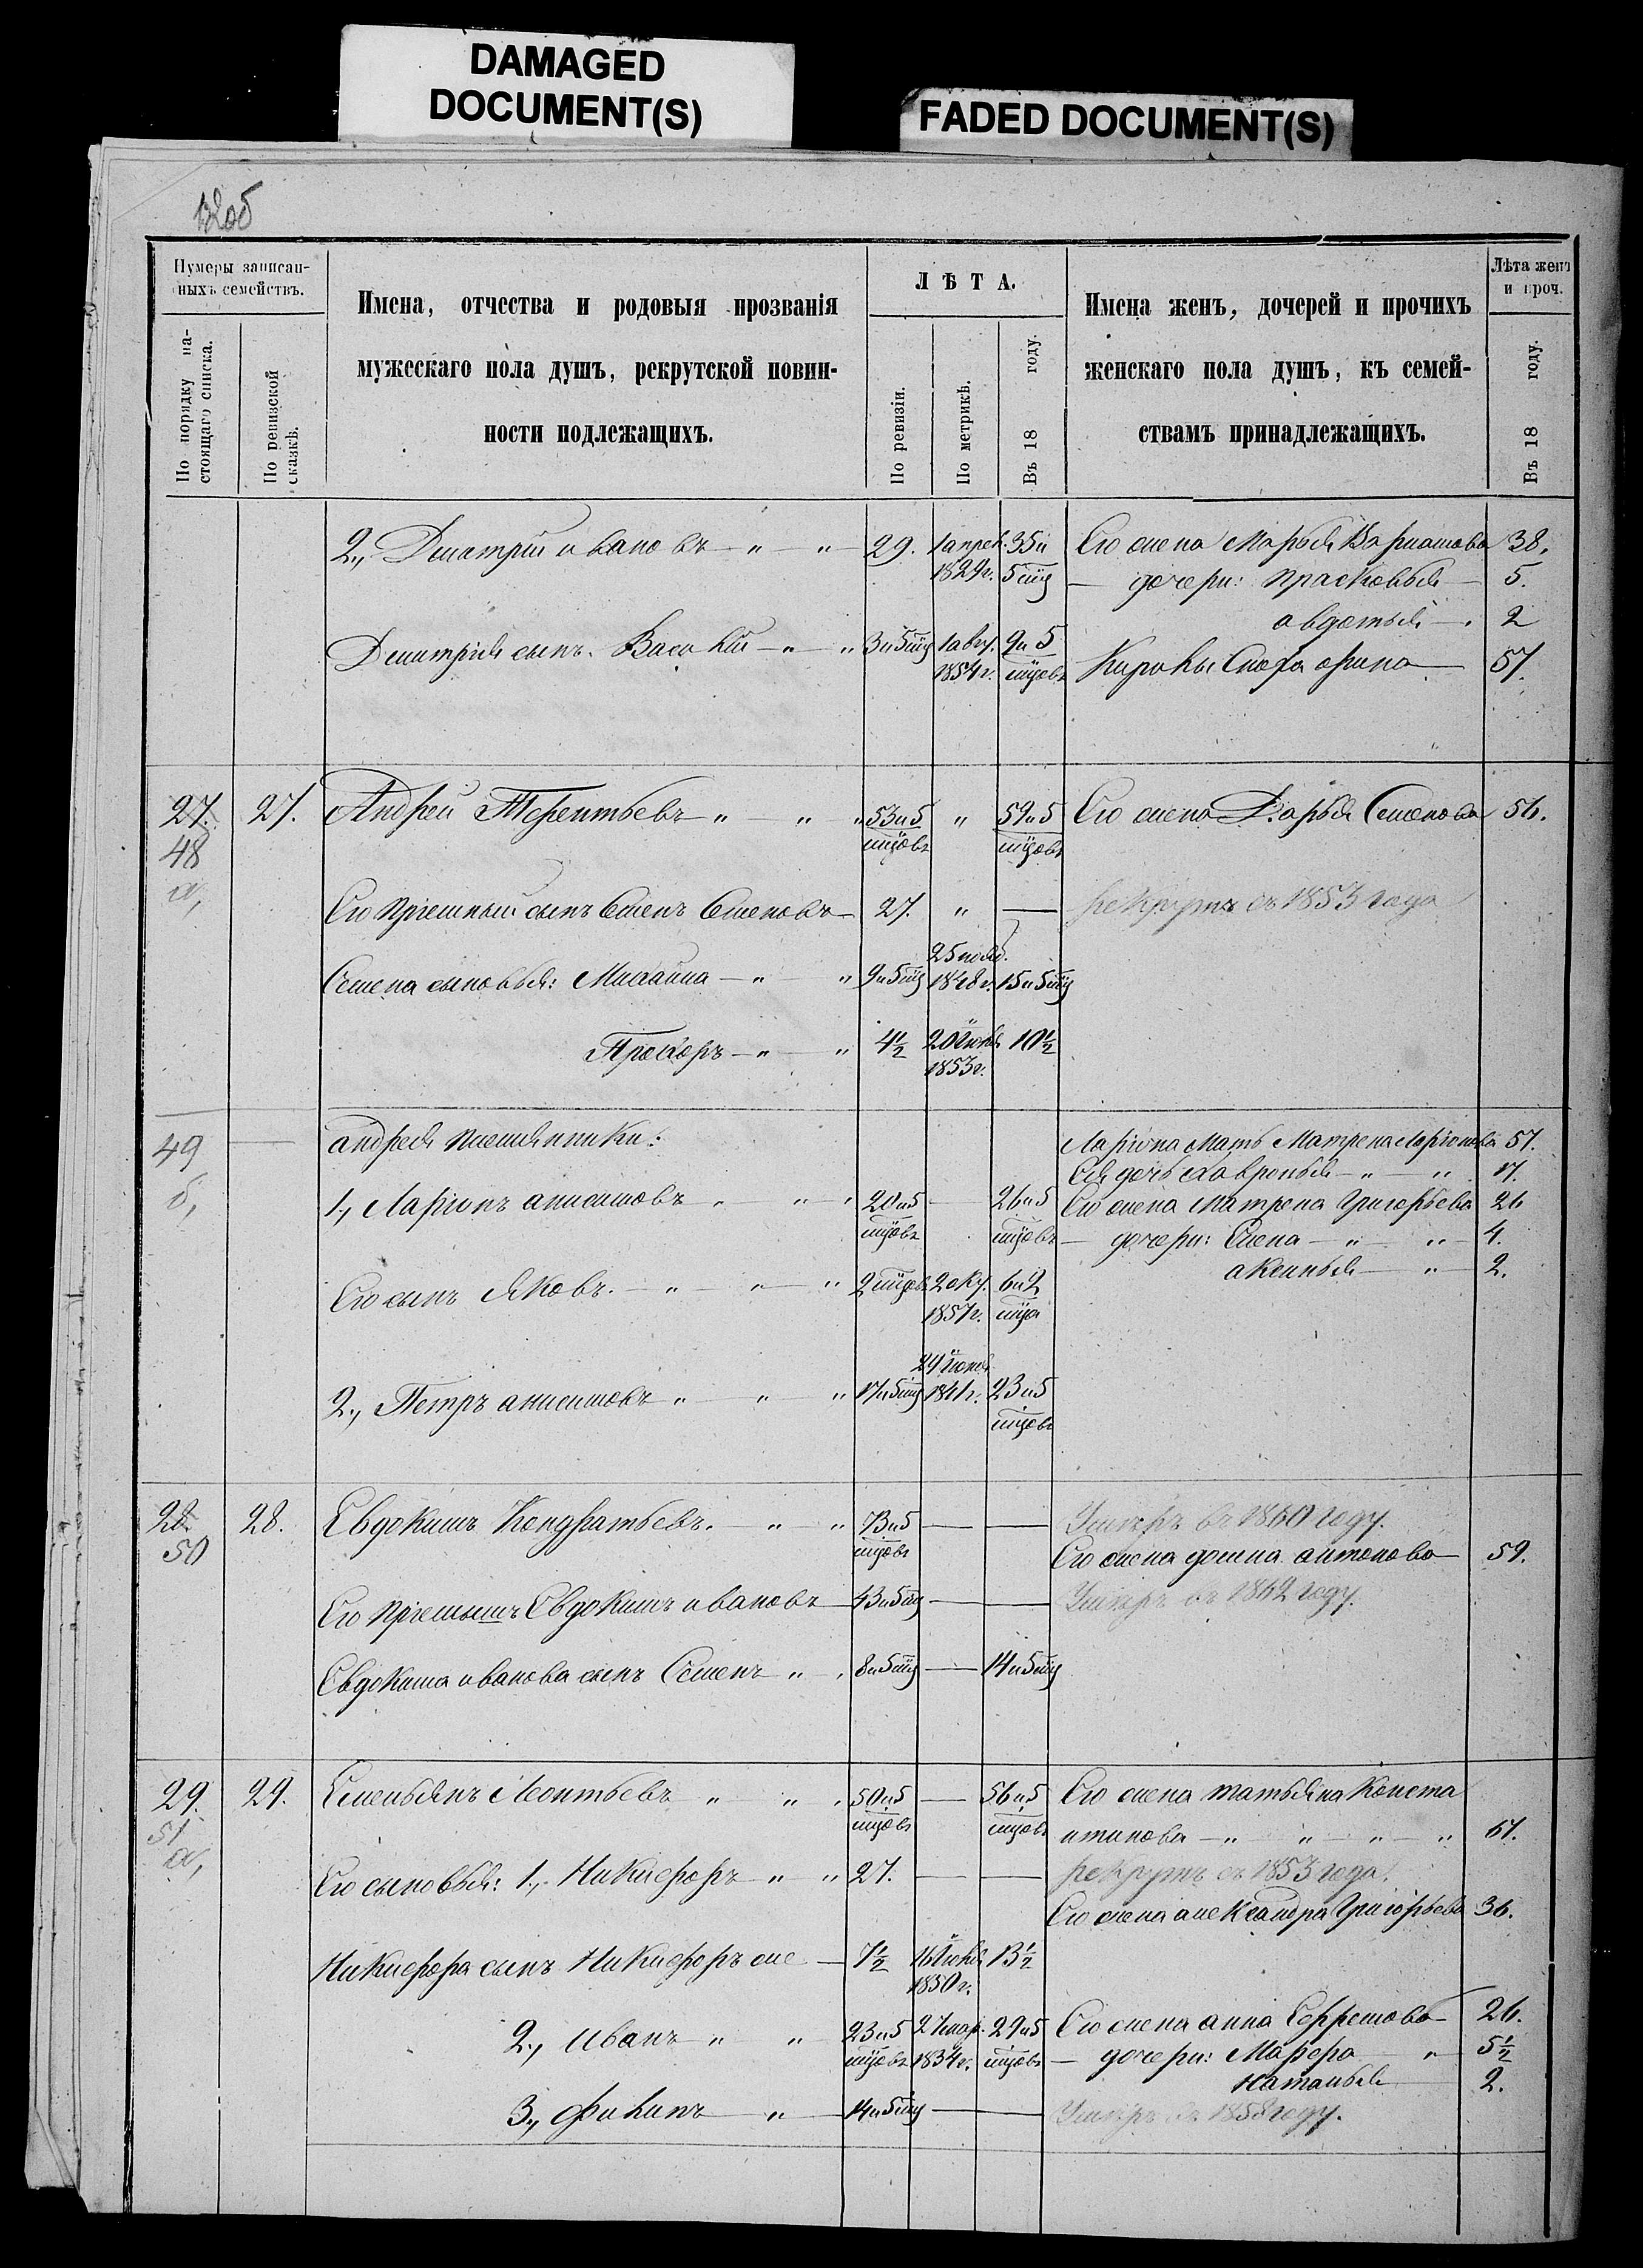 DAMAGED
DOCUMENT(S)
FADED DOCUMENT(S)
Нумеры записан-
ныхъ семействъ.
По порядку на-
стоящаго списка.
По ревизской
сказкѣ.
Имена, отчества и родовыя прозванія
мужескаго пола душъ, рекрутской повин-
ности подлежащихъ.
ЛѢТА.
По ревизіи.
По метрикѣ.
Въ 18 году.
Имена женъ, дочерей и прочихъ
женскаго пола душъ, къ семей-
ствамъ принадлежащихъ.
Лѣта женъ
и проч.
Въ 18 году.
2., Дмитрій ивановъ — " — " 29. 1 апрел. 1829 г. 35 и 5 мц Его жена Марья 38.
— дочери: Прасковья — 5.
авдотья — 2
Дмитрія сынъ. Василій — " — " 3 и 5 мц 1 авгу. 1854 г. 9 и 5 мцовъ 57.
27. 48 а, 27. Андрей Терентьевъ " — " — " 53 и 5 мцовъ " 59 и 5 мцовъ Его жена Дарья Семенова 56.
Его пріемный сынъ Семенъ Семеновъ — 27. " — рекрутъ съ 1853 года
Семена сыновья: Михайла — " — " 9 и 5 мц 25 нояб. 1848 г. 15 и 5 мц
Прохоръ — " — " 4½ 20 1853 г. 10½
49 б, — андрея племянники: Ларіона мать Матрена Ларіонова 57.
Ея дочь Хавронья — " — " 17.
1., Ларіонъ анисимовъ " — " — " 20 и 5 мцовъ — 26 и 5 мцовъ Его жена Матрена Григорьева 26
— дочери: Елена — " — " — 4.
аксинья — " — 2.
Его сынъ Яковъ. — " — " — " 2 мцовъ 2 окт. 1857 г. 6 и 2 мца
2., Петръ анисимовъ " — " — " 17 и 5 мц 29 іюня 1841 г. 23 и 5 мцовъ
28. 50 28. Евдокимъ Кондратьевъ. — " — " 73 и 5 мцовъ — — Умеръ въ 1860 году.
Его жена домна антонова — 59.
Его пріемышъ Евдокимъ ивановъ — 43 и 5 мц — — Умеръ въ 1862 году.
Евдокима иванова сынъ Семенъ " — " 8 и 5 мц — 14 и 5 мц
29. 51 а, 29. Емельянъ Леонтьевъ " — " — " 50 и 5 мцовъ — 56 и 5 мцовъ Его жена татьяна Конста
нтинова — " — " — " — " 61.
Его сыновья: 1., Никифоръ — " — " 27. — — рекрутъ съ 1853 года.
Его жена александра Григорьева 36.
Никифора сынъ Никифоръ же — 7½ 1850 г. 13½
2., иванъ " — " 23 и 5 мцовъ 1834 г. 29 и 5 мцовъ Его жена анна Ефремова — 26.
— дочери: Марфа — " — 5½
Наталья — 2.
3., филипъ — " — 14 и 5 мц — — Умеръ въ 1858 году.